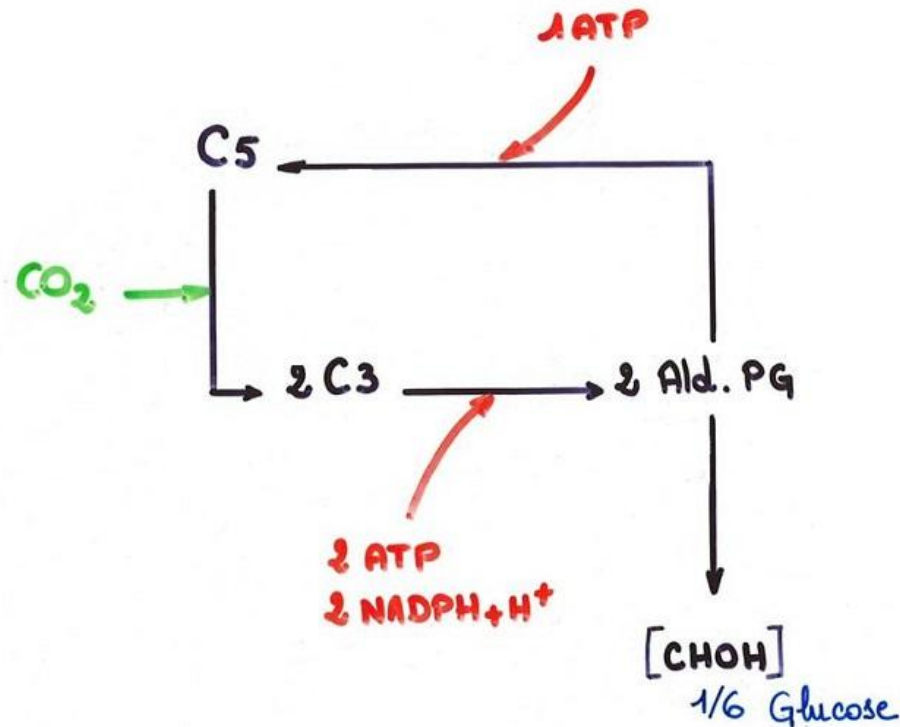 1 ATP
C5
CO₂
2 C3
2 Ald. PG
2 ATP
2 NADPH+H⁺
[CHOH]
1/6 Glucose